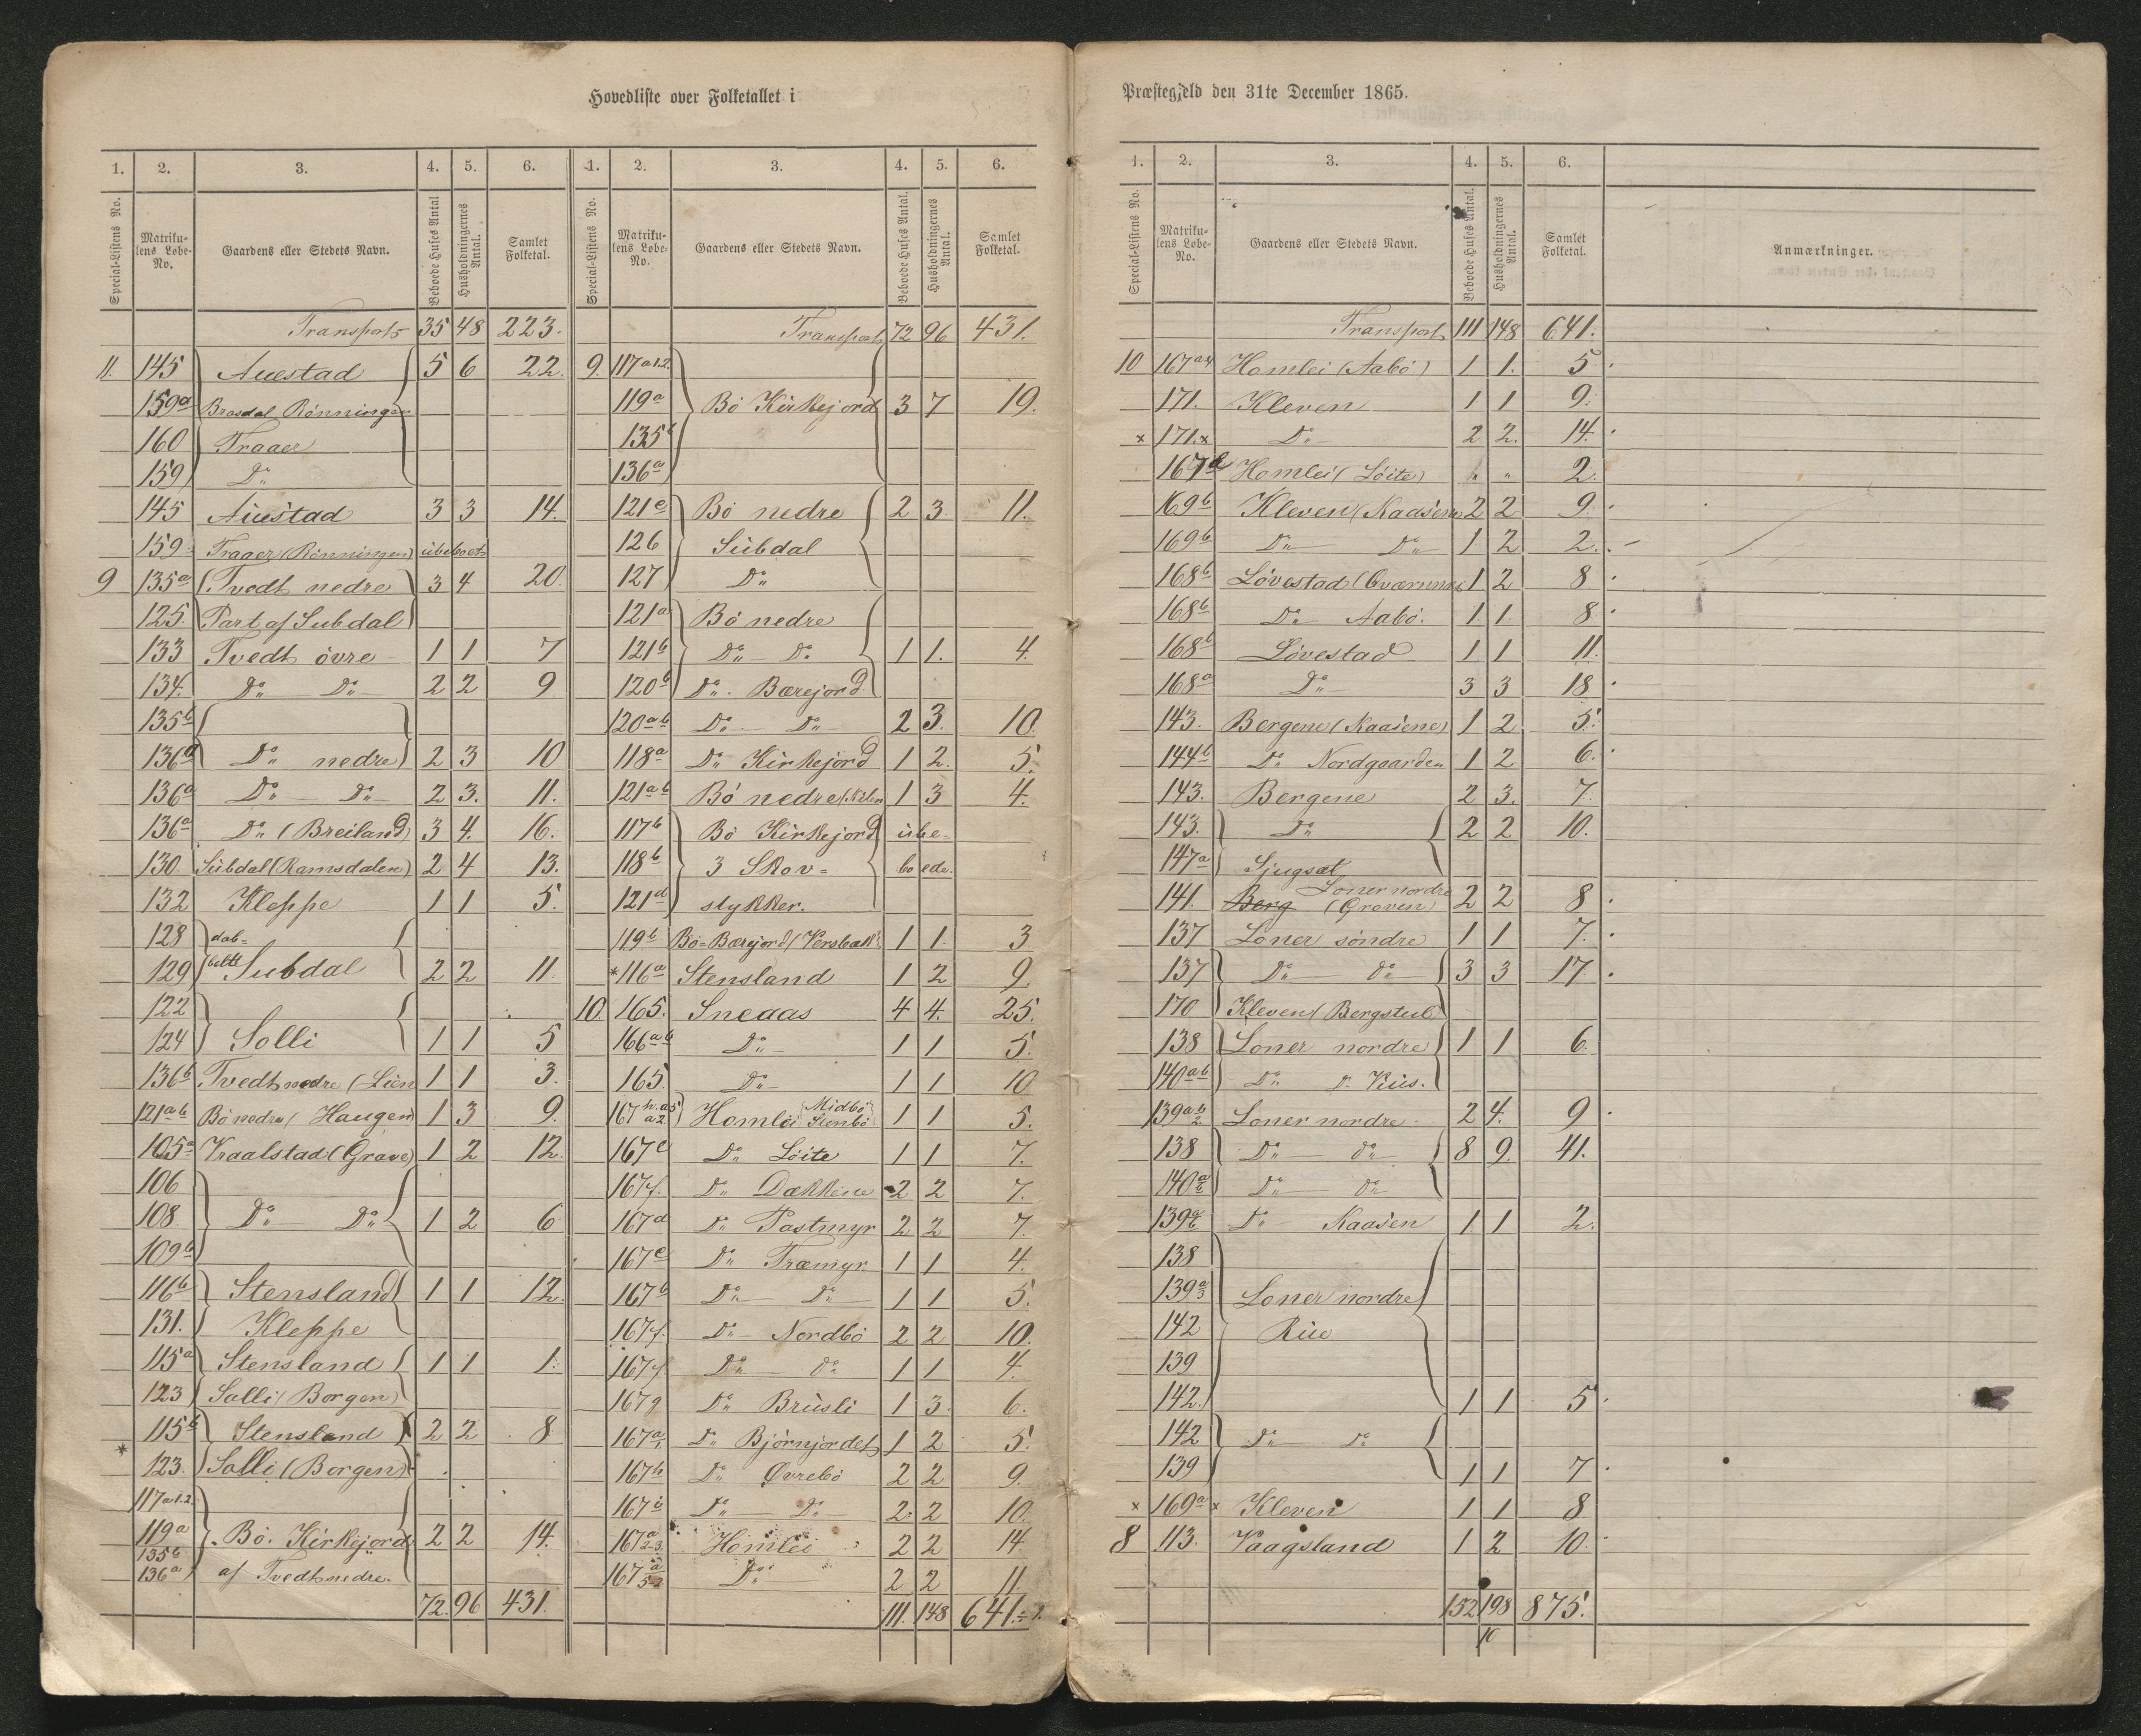 Hovedliste over Folketallet i
1. 2. 3. 4. 5. 6.
Special-Listens No. Matrikulens Løbe-No. Gaardens eller Stedets Navn. Beboede Huses Antal Husholdningernes Antal. Samlet Folketal.
Transport 35 48 223.
11. 145 Auestad 5 6 22.
159a Brasdal Rönningen
160 Traaer
159 Do
145 Auestad 3 3 14.
159 Traaer (Rönningen) ubeboet
9 135a Tvedt nedre 3 4 20.
125. Part af Subdal
133 Tvedt övre 1 1 7
134. Do Do 2 2 9
135b
136d Do nedre 2 3 10
136a Do Do 2 3. 11.
136a Do (Breiland) 3 4. 16.
130 Subdal (Ramsdalen) 2 4 13.
132 Kleppe 1 1 5.
128 dob-
129 belte Subdal 2 2 11.
122
124 Solli 1 1 5
136b Tvedt nedre (Lien 1 1 3.
121ab Bö nedre (Haugen 1 3 9.
105a Vraalstad (Grave) 1 2 12.
106
108 Do Do 1 2 6
109b
116b Stensland 1 1 12.
131. Kleppe
115a Stensland 1 1 1.
123 Solli (Borgen)
115b Stensland 2 2 8
* 123. Solli (Borgen)
117a1.2.
119a Bö. Kirkejord 2 2 14.
135b
136a af Tvedt nedre.
72. 96 431.
1. 2. 3. 4. 5. 6.
Special-Listens No. Matrikulens Løbe-No. Gaardens eller Stedets Navn. Beboede Huses Antal. Husholdningernes Antal. Samlet Folketal.
Transport 72 96 431.
9. 117a1.2.
119a Bö Kirkejord 3 7 19.
135b
136a
121c Bö nedre 2 3 11.
126 Subdal
127 Do
121a Bö nedre
121b Do Do 1 1. 4.
120b Do Bærejord
120ab Do Do 2 3. 10.
118a Do Kirkejord 1 2. 5.
121ab Bö nedre 1 3 4.
117b Bö Kirkejord ube-
118b 3 Skov- boede.
121d stykker.
119b Bö-Bærejord (Versbakk 1 1. 3
*116a Stensland 1 2 9.
10. 165. Sneaas 4 4. 25.
166ab Do 1 1 5.
165. Do 1 1 10
167 h.a5 a2 Homlei Midbö Stenbö 1 1 5.
167c Do Löite 1 1 7.
167f. Do Dækkene 2 2 7.
167d Do Postmyr 2 2 7.
167e Do Træmyr 1 1 4.
167b Do Do 1 1 5.
167f. Do Nordbö 2 2 10.
167f Do do 1 1 4.
167g Do Brusli 1 3. 6.
167a1 Do Björnjordet 1 2 5.
167h Do Øvrebö 2 2 9.
167i Do Do 2. 2 10.
167a 2.3. Homlei 2 2 14.
167a 5.2 Do 2 2 11.
111. 148 641.
Præstegjeld den 31te December 1865.
1. 2. 3. 4. 5. 6.
Special-Listens No. Matrikulens Løbe-No. Gaardens eller Stedets Navn. Beboede Huses Antal. Husholdningernes Antal. Samlet Folketal. Anmærkninger.
Transport 111 148 641.
10 167a4 Homlei (Aabö) 1 1. 5.
171. Kleven 1 1 9.
x 171.x Do 2 2. 14.
167d Homlei (Löite) " " 2.
169b Kleven (Kaasene 2 2 9.
169b Do Do 1 2 2.
168b Lövestad (Gværnnes 1 2 8
168b Do Aabö. 1 1. 8
168b Lövestad 1 1 11.
168a Do 3 3 18
143. Bergene (Kaasene) 1 2 5.
144b Do Nordgaarden 1 2 6.
143. Bergene 2 3. 7.
143. Do 2 2 10.
147a Sjugsæt
Loner nordre
141. Berg (Groven) 2 2 8
137 Loner söndre 1 1 7.
137 Do do 3 3 17.
170 Kleven (Bergstul)
138 Loner nordre 1 1 6.
140ab Do D. Rüs.
139ab2 Loner nordre 2 4. 9
138 Do do 8 9. 41.
140ab Do do
139 Do Kaasen 1 1 2.
138
139a3 Loner nordre
142 Rüe
139
142. 1 1 5
142 Do Do
139 1 1 7
x 169a x Kleven 1 1 8
8 113. Vaagsland 1 2 10.
152 198 875.